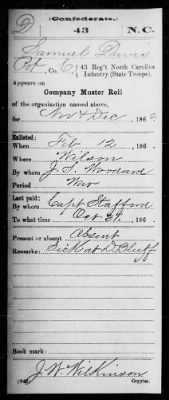 (Confederate.)
D 43 N.C.
Samuel Davis
Pvt, Co. C, 43 Reg't North Carolina
Infantry (State Troops).
Appears on
Company Muster Roll
of the organization named above,
for Nov & Dec, 186
Enlisted:
When Feb 12, 186
Where Wilson
By whom J. S. Woodard
Period War
Last paid:
By whom Capt Stafford
To what time Oct 31, 186
Present or absent Absent
Remarks: Sick at D Bluff
Book mark:
J. W. Wilkinson
(642) Copyist.